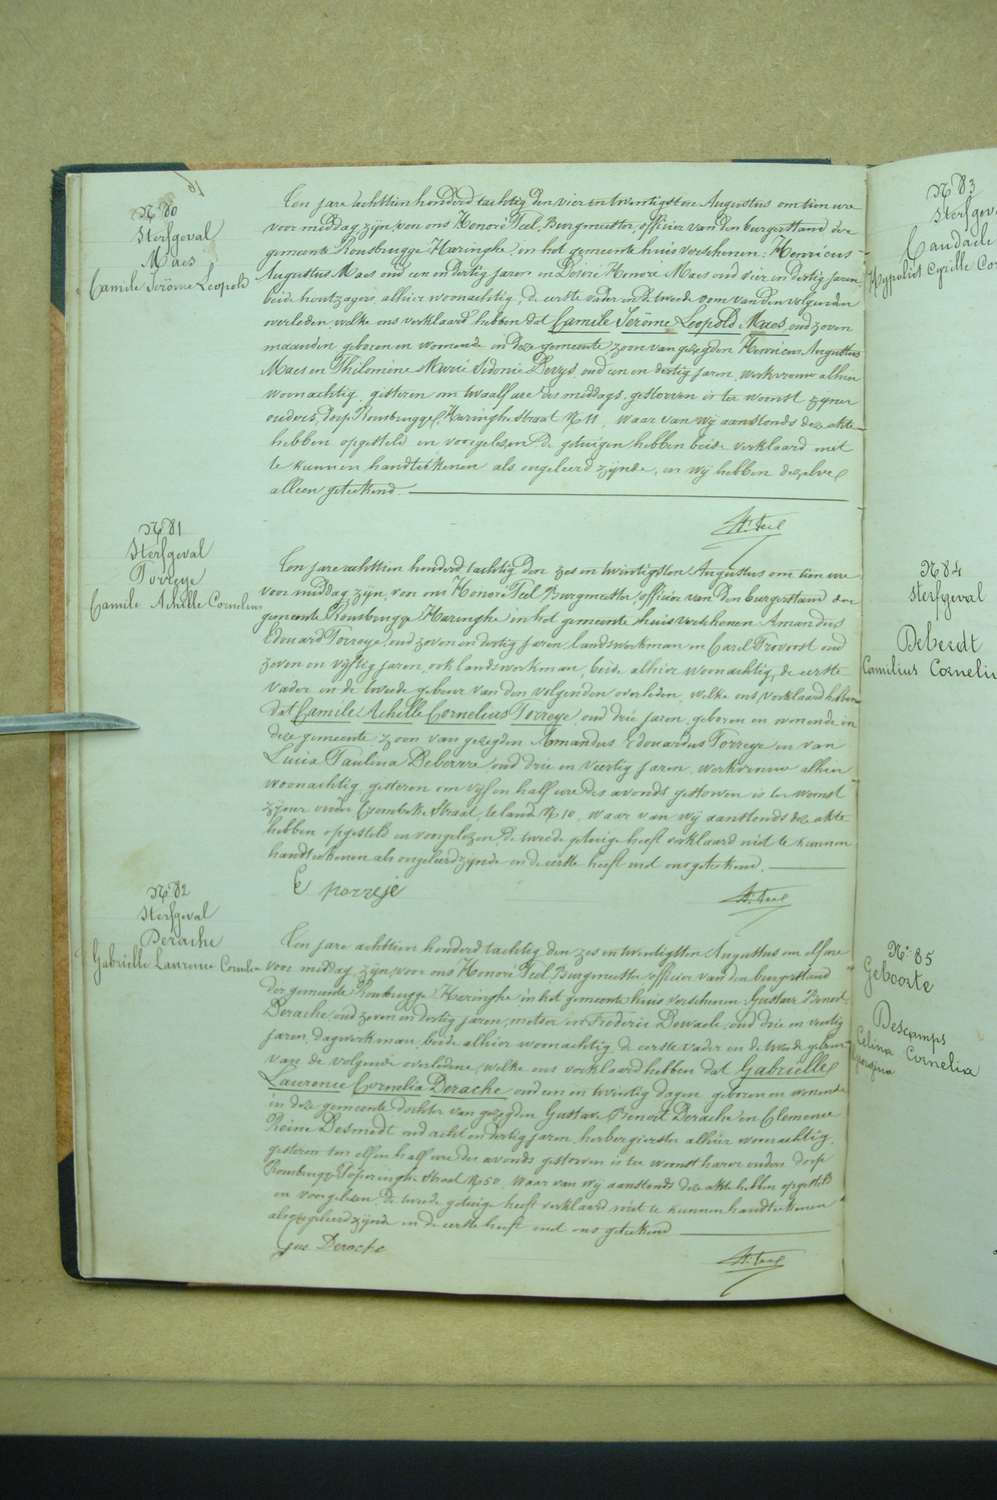 16
N° 80
Sterfgeval
Maes
Camile Jerôme Leopold
Ten jare achttien honderd tachtig den vier en twintigsten Augustus om tien ure
voor middag zijn voor ons Honoré Teel, Burgmeester, officier van den burgerstand der
gemeente Rousbrugge Haringhe in het gemeente huis verschenen: Henricus
Augustus Maes oud een en dertig jaren en Désiré Honoré Maes oud vier en dertig jaren
beide houtzagers, alhier woonachtig, de eerste vader en de tweede oom van den volgenden
overleden, welke ons verklaard hebben dat Camile Jerôme Leopold Maes, oud zeven
maanden, geboren en wonende in deze gemeente zoon van gezegden Henricus Augustus
Maes en Philomène Marie Sidonie Devys, oud een en dertig jaren, werkvrouw alhier
woonachtig, gisteren om twaalf ure des middags, gestorven is ter woonst zijner
ouders, dorp Rousbrugge, Haringhestraat N° 11, waar van wij aanstonds deze akte
hebben opgesteld en voorgelezen. De getuigen hebben beide verklaard niet
te kunnen handteekenen als ongeleerd zijnde, en wij hebben dezelve
alleen geteekend.
H. Teel
N° 81
Sterfgeval
Porreye
Camile Achille Cornelius
Ten jare achttien honderd tachtig den zes en twintigsten Augustus om tien ure
voor middag zijn voor ons Honoré Teel, Burgmeester, officier van den burgerstand der
gemeente Rousbrugge Haringhe in het gemeente huis verschenen Amandus
Edouard Porreye, oud zeven en dertig jaren landswerkman en Carel Provoost oud
zeven en vijftig jaren, ook landswerkman, beide alhier woonachtig, de eerste
vader en de tweede gebuur van den volgenden overleden, welke ons verklaard hebben
dat Camile Achille Cornelius Porreye oud drie jaren, geboren en wonende in
deze gemeente zoon van gezegden Amandus Edouardus Porreye en van
Lucia Paulina oud drie en veertig jaren, werkvrouw alhier
woonachtig, gisteren om vijf en half ure des avonds gestorven is ter woonst
zijner ouders Crombeke Straat, te lande N° 10, waar van wij aanstonds deze akte
hebben opgesteld en voorgelezen. De tweede getuige heeft verklaard niet te kunnen
handteekenen als ongeleerd zijnde en de eerste heeft met ons geteekend.
E porreje
H. Teel
N° 82
Sterfgeval
Derache
Gabrielle Laurence Cornelia
Ten jare achttien honderd tachtig den zes en twintigsten Augustus om elf ure
voor middag zijn voor ons Honoré Teel, Burgmeester officier van den burgerstand
der gemeente Rousbrugge Haringhe in het gemeente huis verschenen: Gustave Benoit
Derache, oud zeven en dertig jaren, metser en Frederic Dewaele, oud drie en veertig
jaren, dagwerkman, beide alhier woonachtig de eerste vader en de tweede gebuur
van de volgende overledene, welke ons verklaard hebben dat Gabrielle
Laurence Cornelia Derache oud een en twintig dagen geboren en wonende
in deze gemeente dochter van gezegden Gustave Benoit Derache en Clemence
Reine Desmedt oud acht en dertig jaren, herbergierster alhier woonachtig,
gisteren ten elf en half ure des avonds gestorven is ter woonst harer ouders dorp
Rousbrugge Poperinghe Straat N° 50, waar van wij aanstonds deze akte hebben opgesteld
en voorgelezen. De tweede getuige heeft verklaard niet te kunnen handteekenen
als ongeleerd zijnde en de eerste heeft met ons geteekend
Gus Derache
H. Teel
N° 83
Sterfgeval
Hypolict Cyrille
N° 84
Sterfgeval
Debeedt
Camilius
N° 85
Geboorte
Descamps
Celina Cornelia